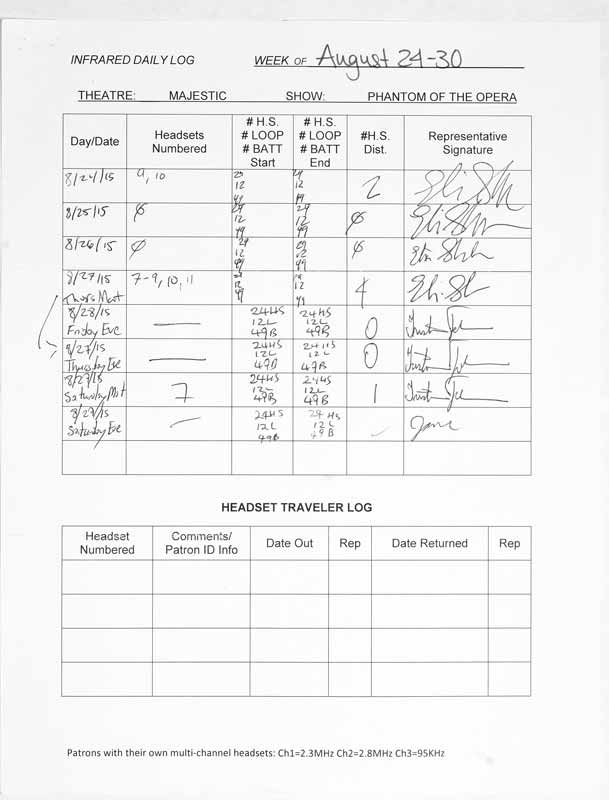 INFRARED DAILY LOG WEEK OF August 24-30
THEATRE: MAJESTIC SHOW: PHANTOM OF THE OPERA
Day/Date
Headsets
Numbered
# H.S.
# LOOP
# BATT
Start
# H.S.
# LOOP
# BATT
End
#H.S.
Dist.
Representative
Signature
8/24/15 9, 10
12
49
12
49
2
8/25/15 ∅
24
12
49
24
12
49
∅
8/26/15 ∅
24
12
49
∅
8/27/15
Thurs Mat
7-9, 10, 11
12
49
12
49
4
8/28/15
Friday Eve
—
24HS
12L
49B
24HS
12L
49B
0
8/27/15
Thursday Eve
—
24HS
12L
49B
24HS
12L
49B
0
8/29/15
Saturday Mat
7
24HS
12L
49B
24HS
12L
49B
1
8/29/15
Saturday Eve
—
24HS
12L
49B
24HS
12L
49B
HEADSET TRAVELER LOG
Headset
Numbered
Comments/
Patron ID Info
Date Out
Rep
Date Returned
Rep
Patrons with their own multi-channel headsets: Ch1=2.3MHz Ch2=2.8MHz Ch3=95KHz